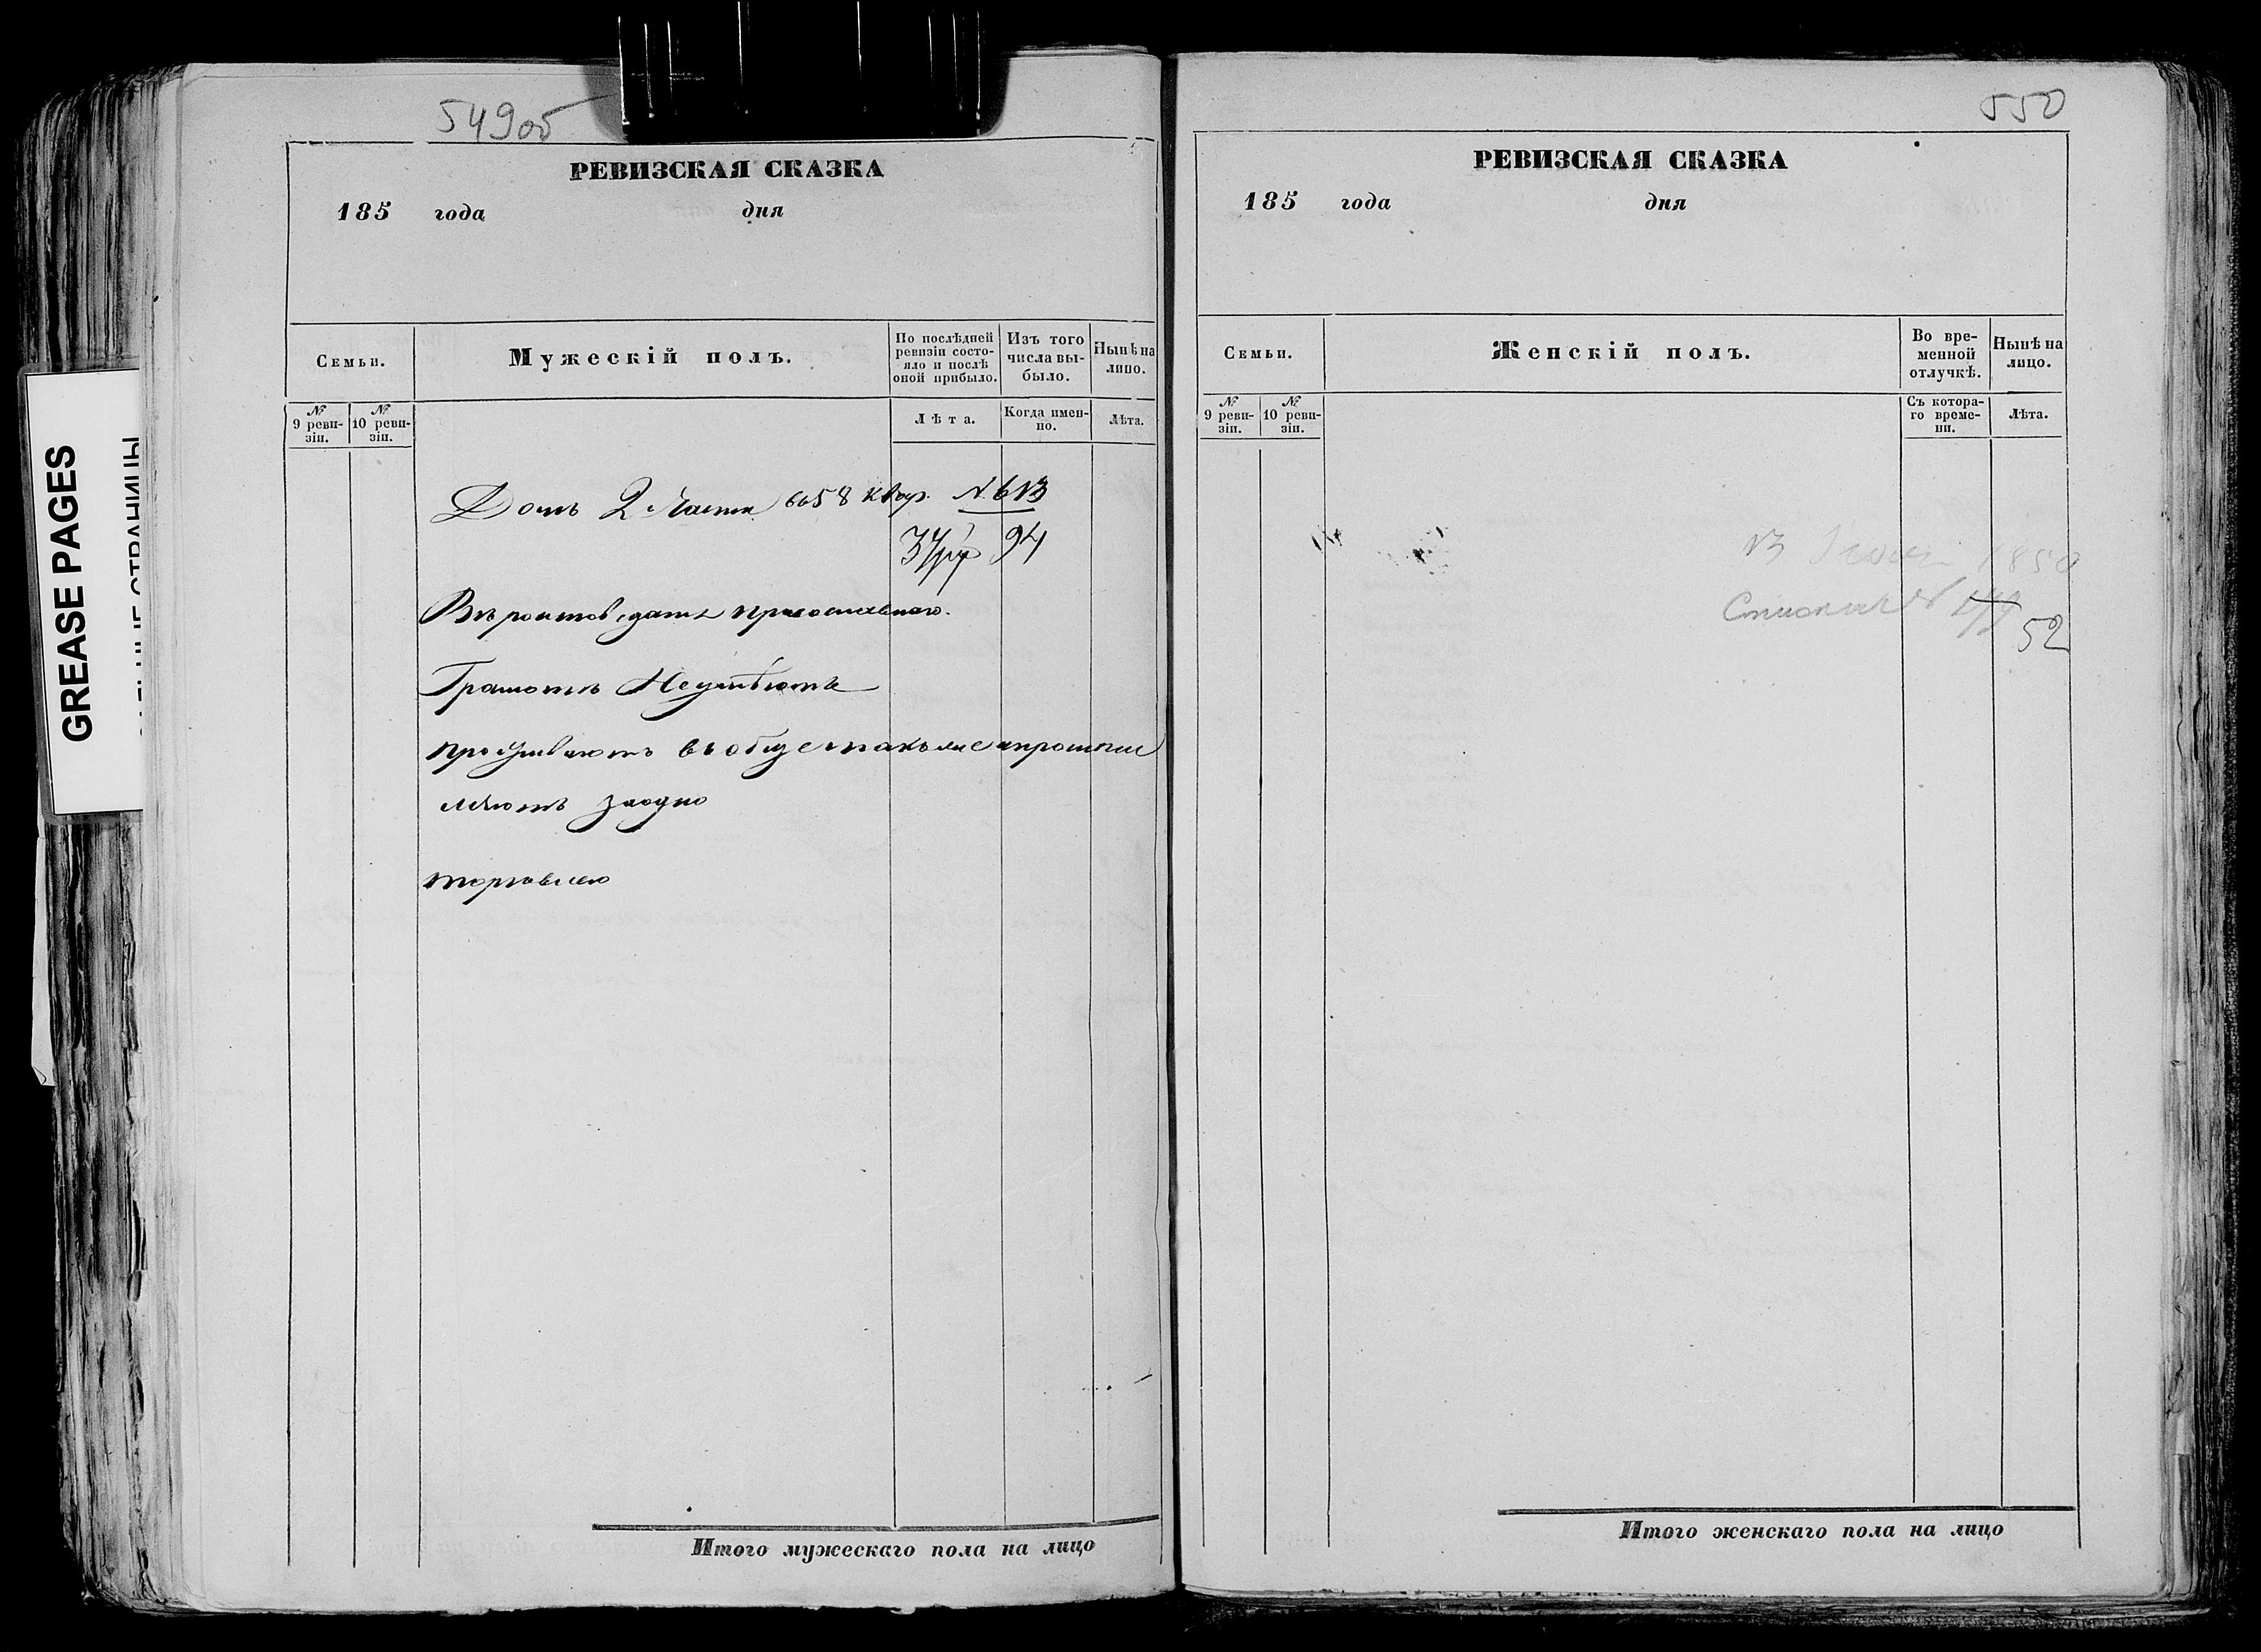 549об
РЕВИЗСКАЯ СКАЗКА
185 года дня
Семьи.
Мужескій полъ.
По послѣдней ревизіи состояло и послѣ оной прибыло.
Изъ того числа выбыло.
Нынѣ на лицо.
№ 9 ревизіи.
№ 10 ревизіи.
Лѣта.
Когда именно.
Лѣта.
Домъ 2 Части въ 58 квар. №
94
Вѣроисповѣданія православнаго.
Грамотѣ Не умѣютъ
проживаютъ въ обще также и промыш
ляютъ заодно
торговлею
Итого мужескаго пола на лицо
550
РЕВИЗСКАЯ СКАЗКА
185 года дня
Семьи.
Женскій полъ.
Во временной отлучкѣ.
Нынѣ на лицо.
№ 9 ревизіи.
№ 10 ревизіи.
Съ котораго времени.
Лѣта.
1850
52
Итого женскаго пола на лицо
GREASE PAGES